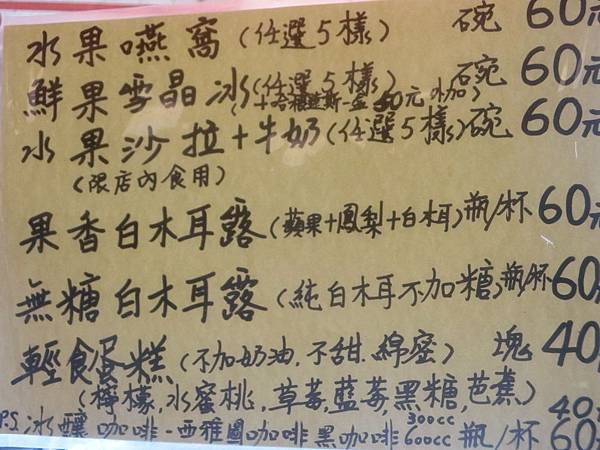 水果嚥窩(任選5樣) 碗 60元
鮮果雪晶冰(任選5樣) 碗 60元
(+哈根達斯一盒 60元 加)
水果沙拉+牛奶(任選5樣)碗 60元
(限店內食用)
果香白木耳露(蘋果+鳳梨+白木耳)瓶/杯 60元
無糖白木耳露(純白木耳不加糖)瓶/杯 60
輕食蛋糕(不加奶油.不甜.綿密) 塊 40
(檸檬,水蜜桃,草莓,藍莓,黑糖,芭蕉)
P.S.冰釀咖啡-西雅圖咖啡 黑咖啡 300cc 40
600cc 瓶/杯 60